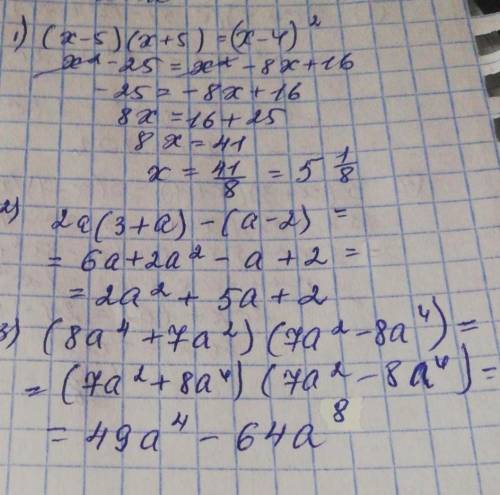 1) (x-5)(x+5)=(x-4)²
x²-25=x²-8x+16
-25=-8x+16
8x=16+25
8x=41
x=41/8=5 1/8
2) 2a(3+a)-(a-2)=
=6a+2a²-a+2=
=2a²+5a+2
3) (8a⁴+7a²)(7a²-8a⁴)=
=(7a²+8a⁴)(7a²-8a⁴)=
=49a⁴-64a⁸